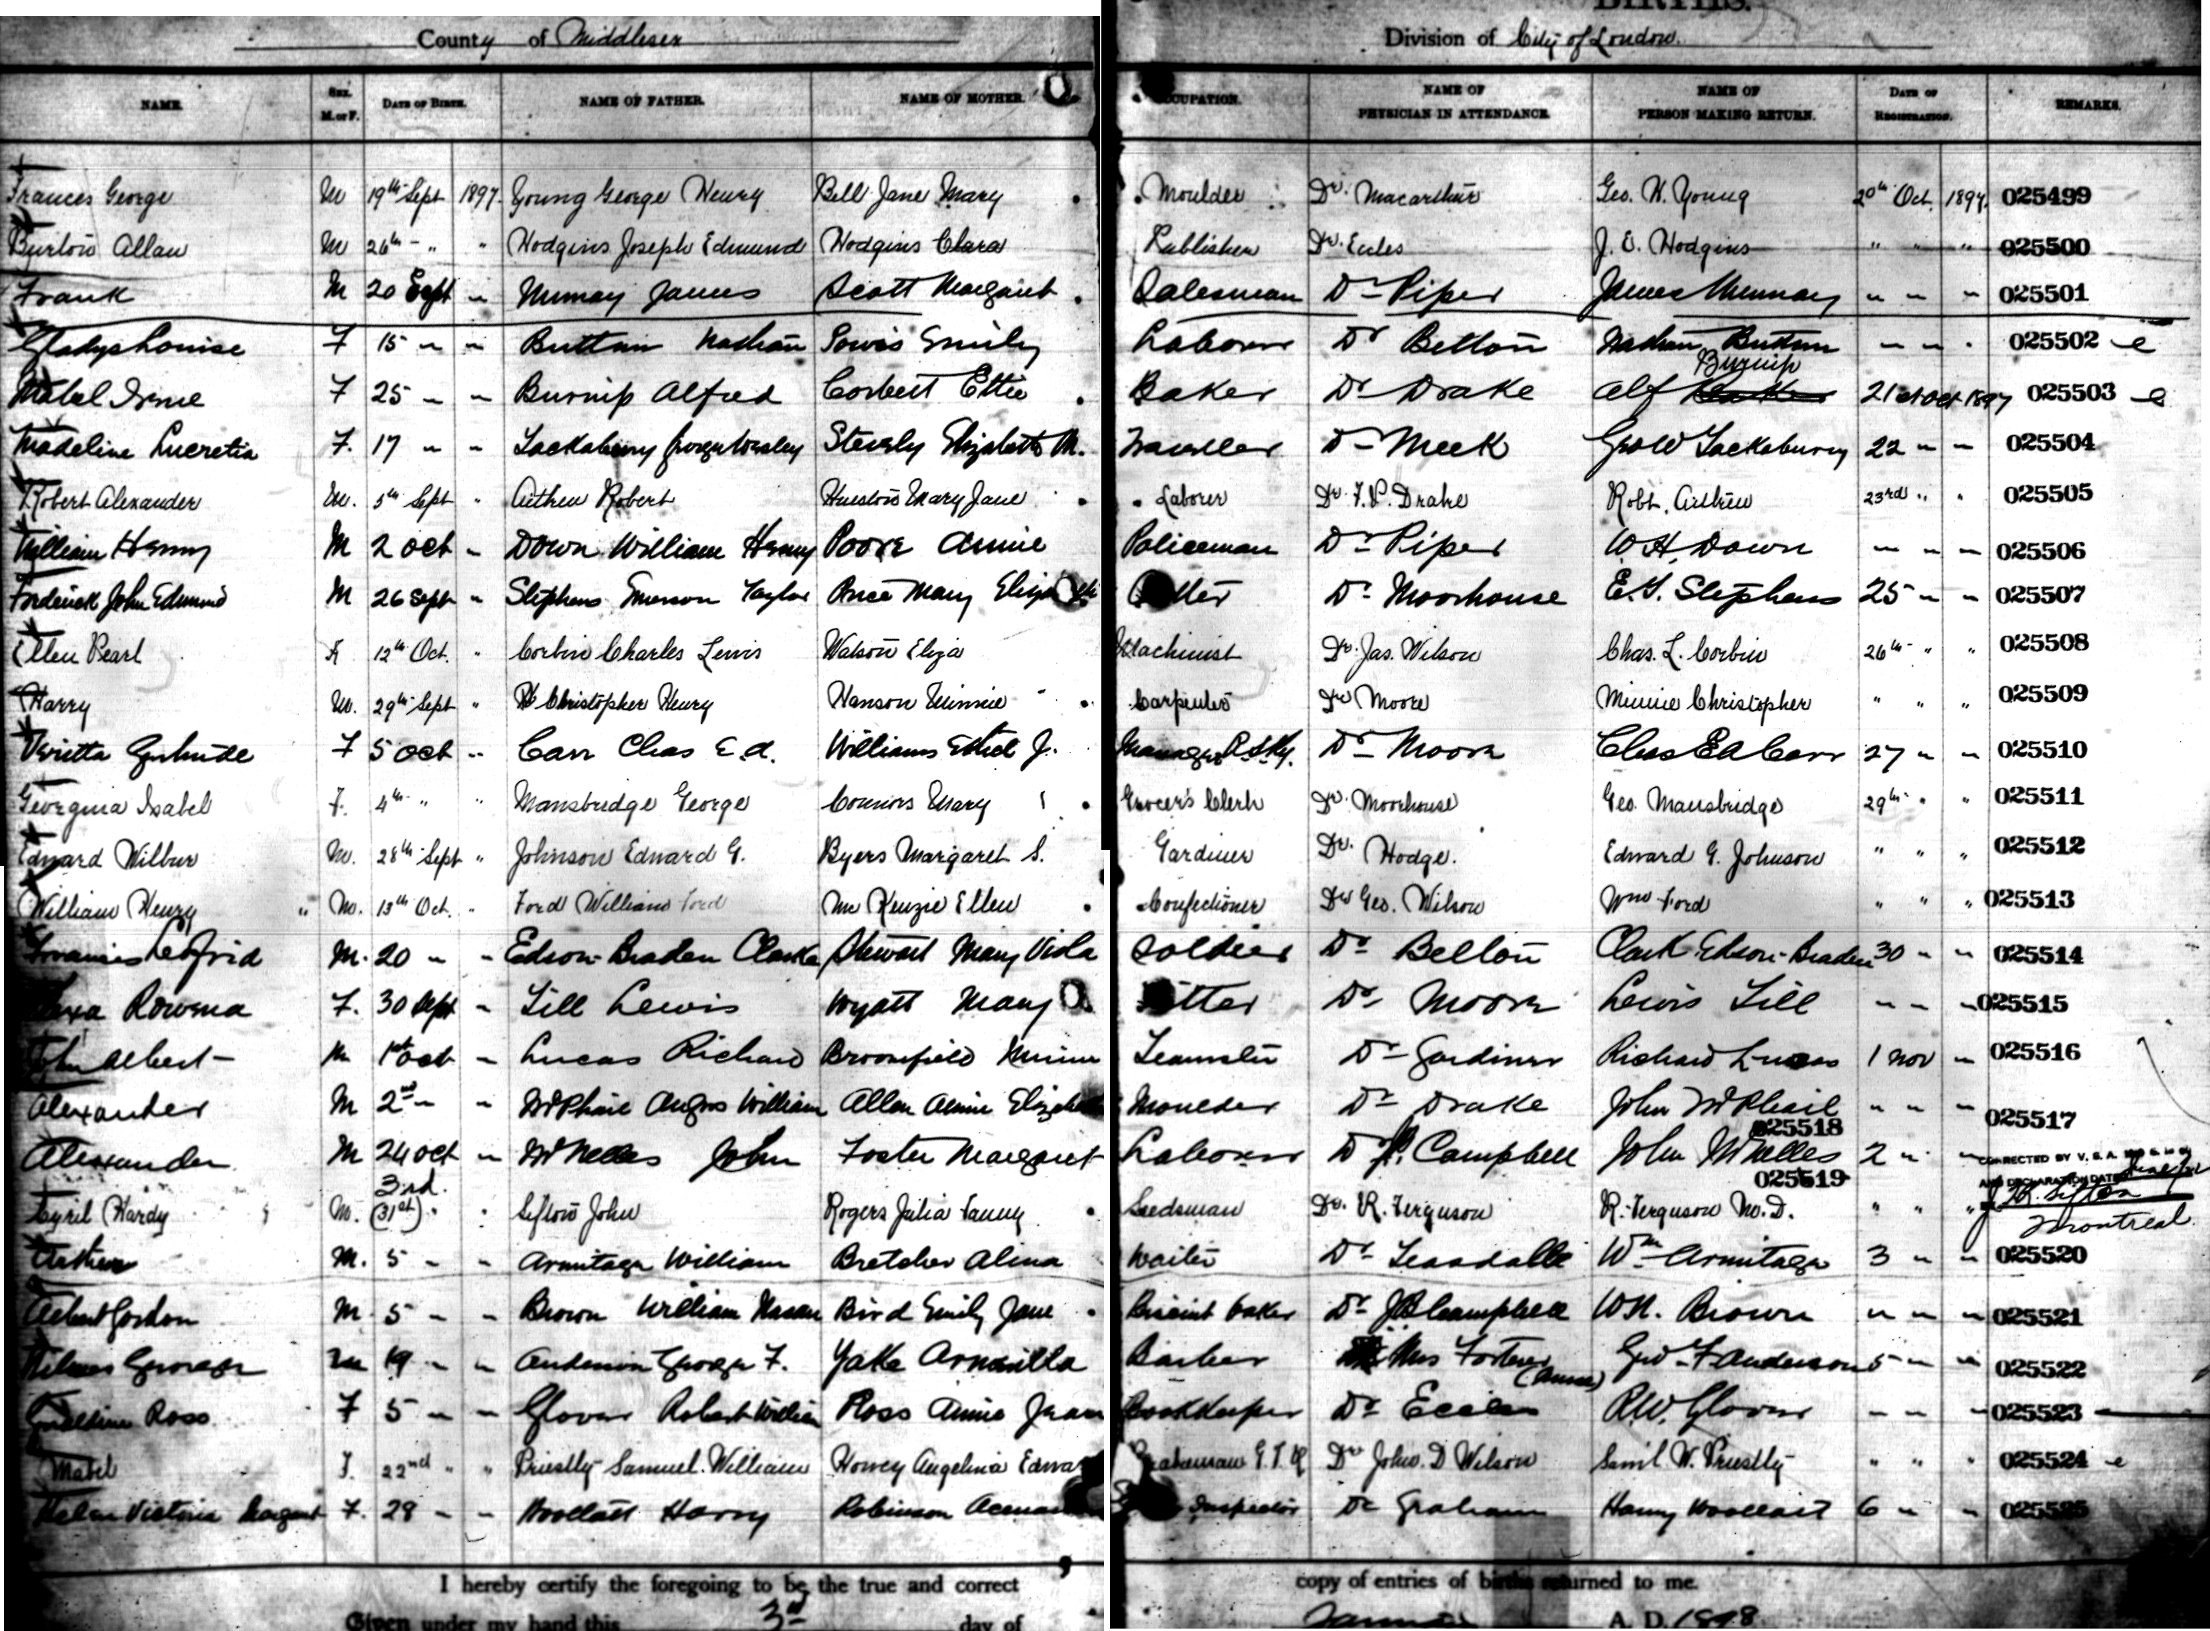 BIRTHS.
County of Middlesex Division of City of London.
NAME. SEX. M. or F. DATE OF BIRTH. NAME OF FATHER. NAME OF MOTHER. OCCUPATION. NAME OF PHYSICIAN IN ATTENDANCE. NAME OF PERSON MAKING RETURN. DATE OF REGISTRATION. REMARKS.
Frances George M 19th Sept 1897. Young George Henry Bell Jane Mary Moulder Dr. Macarthur Geo. H. Young 20th Oct. 1897. 025499
Burton Allan M 26th - " " Hodgins Joseph Edmund Hodgins Clara Publisher Dr. Eccles J. E. Hodgins " " " 025500
Frank M 20 Sept " Murray James Scott Margaret Salesman Dr Piper James Murray " " " 025501
Gladys Louise F 15 " " Buttan Nathan Emily Laborer Dr Belton Nathan " " " 025502 e
Mabel Irene F 25 " " Burnip Alfred Corbert Ettie Baker Dr Drake Alf Burnip 21st Oct 1897 025503 e
Madeline Lucretia F. 17 " " Lackabury George Wesley Steverly Elizabeth M. Traveller Dr Meek Geo W Lackabury 22 " " 025504
Robert Alexander M. 5th Sept " Aithew Robert Hueston Mary Jane Laborer Dr. F. P. Drake Robt. Aithew 23rd " " 025505
William Henry M 2 Oct " Down William Henry Poore Annie Policeman Dr Piper W H Down " " " 025506
Frederick John Edmund M 26 Sept " Stephens Emerson Taylor Price Mary Dr Moorhouse E. T. Stephens 25 " " 025507
Ellen Pearl F 12th Oct. " Corbin Charles Lewis Watson Eliza Machinist Dr. Jas. Wilson Chas. L. Corbin 26th " " 025508
Harry M. 29th Sept " Christopher Henry Hanson Minnie Carpenter Dr Moore Minnie Christopher " " " 025509
Veritta Gertrude F 5 Oct " Carr Chas E. A. Williams Ethel J. Manager Dr Moore Chas E A Carr 27 " " 025510
Georgina Isabel F. 4th " " Mansbridge George Connors Mary Grocer's Clerk Dr. Moorhouse Geo. Mansbridge 29th " " 025511
Edward Wilbur M. 28th Sept " Johnson Edward G. Byers Margaret S. Gardiner Dr. Hodge. Edward G. Johnson " " " 025512
William Henry M. 13th Oct. " Ford William Ford McKenzie Ellen Confectioner Dr Geo. Wilson Wm Ford " " " 025513
Leofrid M. 20 " " Edson-Braden Clarke Stewart Mary Viola Soldier Dr Belton Clark Edson-Braden 30 " " 025514
Rowena F. 30 Sept " Till Lewis Wyatt Mary Dr Moore Lewis Till " " " 025515
John Albert M 1st Oct " Lucas Richard Broomfield Minnie Teamster Dr Gardiner Richard Lucas 1 Nov " 025516
Alexander M 2nd " " McPhail Angus William Allen Annie Elizabeth Moulder Dr Drake John McPhail " " " 025517
Alexander M 24 Oct " McNelles John Foster Margaret Laborer Dr Campbell John McNelles 2 " " 025518
CORRECTED BY V. S. A.
AND DECLARATION DATED
Cyril Hardy M. 3rd. (31st) " " Sifton John Rogers Julia Fanny Seedsman Dr. R. Ferguson R. Ferguson M.D. " " " 025519 Sifton Montreal
Arthur M. 5 " " Armitage William Bretcher Alina Waiter Dr Teasdalle Wm Armitage 3 " " 025520
Albert Gordon M. 5 " " Brown William Bird Emily Jane Biscuit baker Dr J B Campbell W H. Brown " " " 025521
George M 19 " " Anderson George F. Yake Armilla Barber Mrs Fortner (Nurse) Geo F Anderson 5 " " 025522
Geraldine Ross F 5 " " Glover Robert William Ross Annie Jean Bookkeeper Dr Eccles R.W. Glover " " " 025523
Mabel F. 22nd " " Priestly Samuel William Howey Angelina Brakeman G.T.R Dr John D Wilson Saml W. Priestly " " " 025524 e
Helen Victoria Margaret F. 28 " " Woollatt Harry Robinson Inspector Dr Graham Harry Woollatt 6 " " 025525
I hereby certify the foregoing to be the true and correct copy of entries of births returned to me.
Given under my hand this 3rd day of A. D. 1898